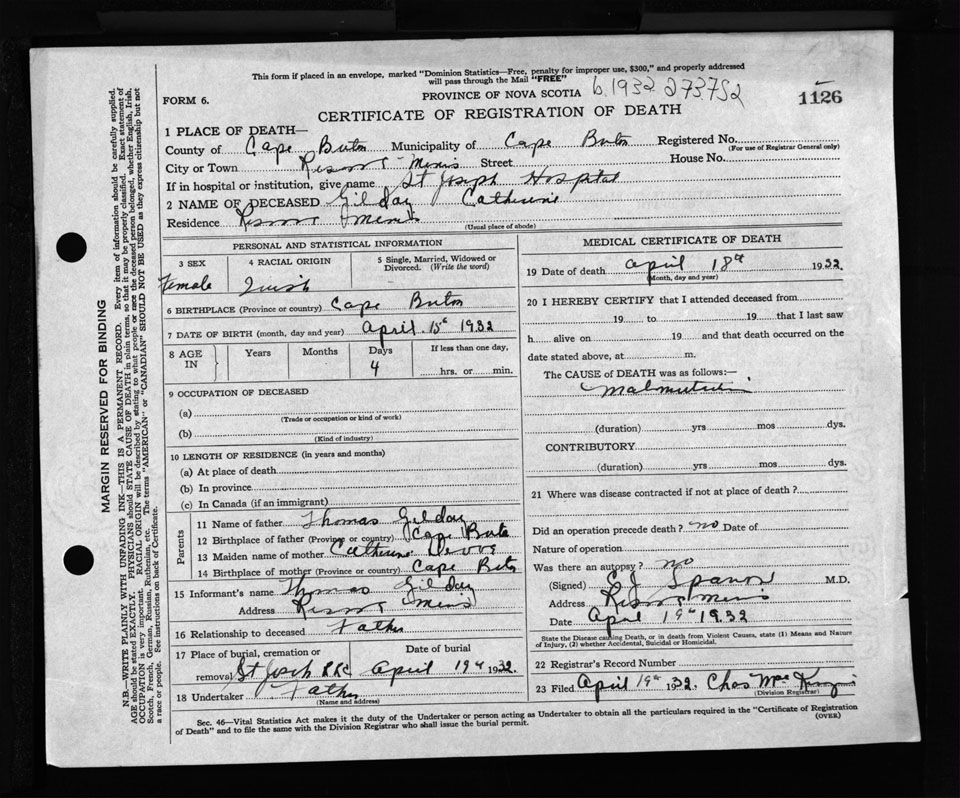 This form if placed in an envelope, marked "Dominion Statistics—Free, penalty for improper use, $300," and properly addressed
will pass through the Mail "FREE"
PROVINCE OF NOVA SCOTIA b.1932 273752
FORM 6.
CERTIFICATE OF REGISTRATION OF DEATH
1126
1 PLACE OF DEATH—
County of Cape Breton Municipality of Cape Breton Registered No.
(For use of Registrar General only)
City or Town Reserve Mines Street House No.
If in hospital or institution, give name St Joseph Hospital
2 NAME OF DECEASED Gilday Catherine
Residence Reserve Mines
(Usual place of abode)
PERSONAL AND STATISTICAL INFORMATION
3 SEX 4 RACIAL ORIGIN 5 Single, Married, Widowed or Divorced. (Write the word)
Female Irish
6 BIRTHPLACE (Province or country) Cape Breton
7 DATE OF BIRTH (month, day and year) April 15th 1932
8 AGE IN Years Months Days If less than one day,
4 hrs. or min.
9 OCCUPATION OF DECEASED
(a)
(Trade or occupation or kind of work)
(b)
(Kind of industry)
10 LENGTH OF RESIDENCE (in years and months)
(a) At place of death
(b) In province
(c) In Canada (if an immigrant)
Parents
11 Name of father Thomas Gilday
12 Birthplace of father (Province or country) Cape Breton
13 Maiden name of mother Catherine
14 Birthplace of mother (Province or country) Cape Breton
15 Informant's name Thomas Gilday
Address Reserve Mines
16 Relationship to deceased Father
17 Place of burial, cremation or removal Date of burial
St Josph April 19th 1932
18 Undertaker Father
(Name and address)
MEDICAL CERTIFICATE OF DEATH
19 Date of death April 18th 1932
(Month, day and year)
20 I HEREBY CERTIFY that I attended deceased from
19 to 19 that I last saw
h alive on 19 and that death occurred on
date stated above, at m.
The CAUSE of DEATH was as follows:—
(duration) yrs mos dys.
CONTRIBUTORY
(duration) yrs mos dys.
21 Where was disease contracted if not at place of death?
Did an operation precede death? no Date of
Nature of operation
Was there an autopsy? no
(Signed) M.D.
Address Reserve Mines
Date April 19th 1932
State the Disease causing Death, or in death from Violent Causes, state (1) Means and Nature
of Injury, (2) whether Accidental, Suicidal or Homicidal.
22 Registrar's Record Number
23 Filed April 19th 32. Chas
(Division Registrar)
Sec. 46—Vital Statistics Act makes it the duty of the Undertaker or person acting as Undertaker to obtain all the particulars required in the "Certificate of Registration
of Death" and to file the same with the Division Registrar who shall issue the burial permit. (OVER)
MARGIN RESERVED FOR BINDING
N.B.—WRITE PLAINLY WITH UNFADING INK—THIS IS A PERMANENT RECORD. Every item of information should be carefully supplied.
AGE should be stated EXACTLY. PHYSICIANS should STATE CAUSE OF DEATH in plain terms, so that it may be properly classified. Exact statement of
OCCUPATION is very important. RACIAL ORIGIN will be described by stating to what people or race the deceased person belonged, whether English, Irish,
Scotch, French, German, Russian, Ruthenian, etc. The terms "AMERICAN" or "CANADIAN" SHOULD NOT BE USED as they express citizenship but not
a race or people. See instructions on back of Certificate.